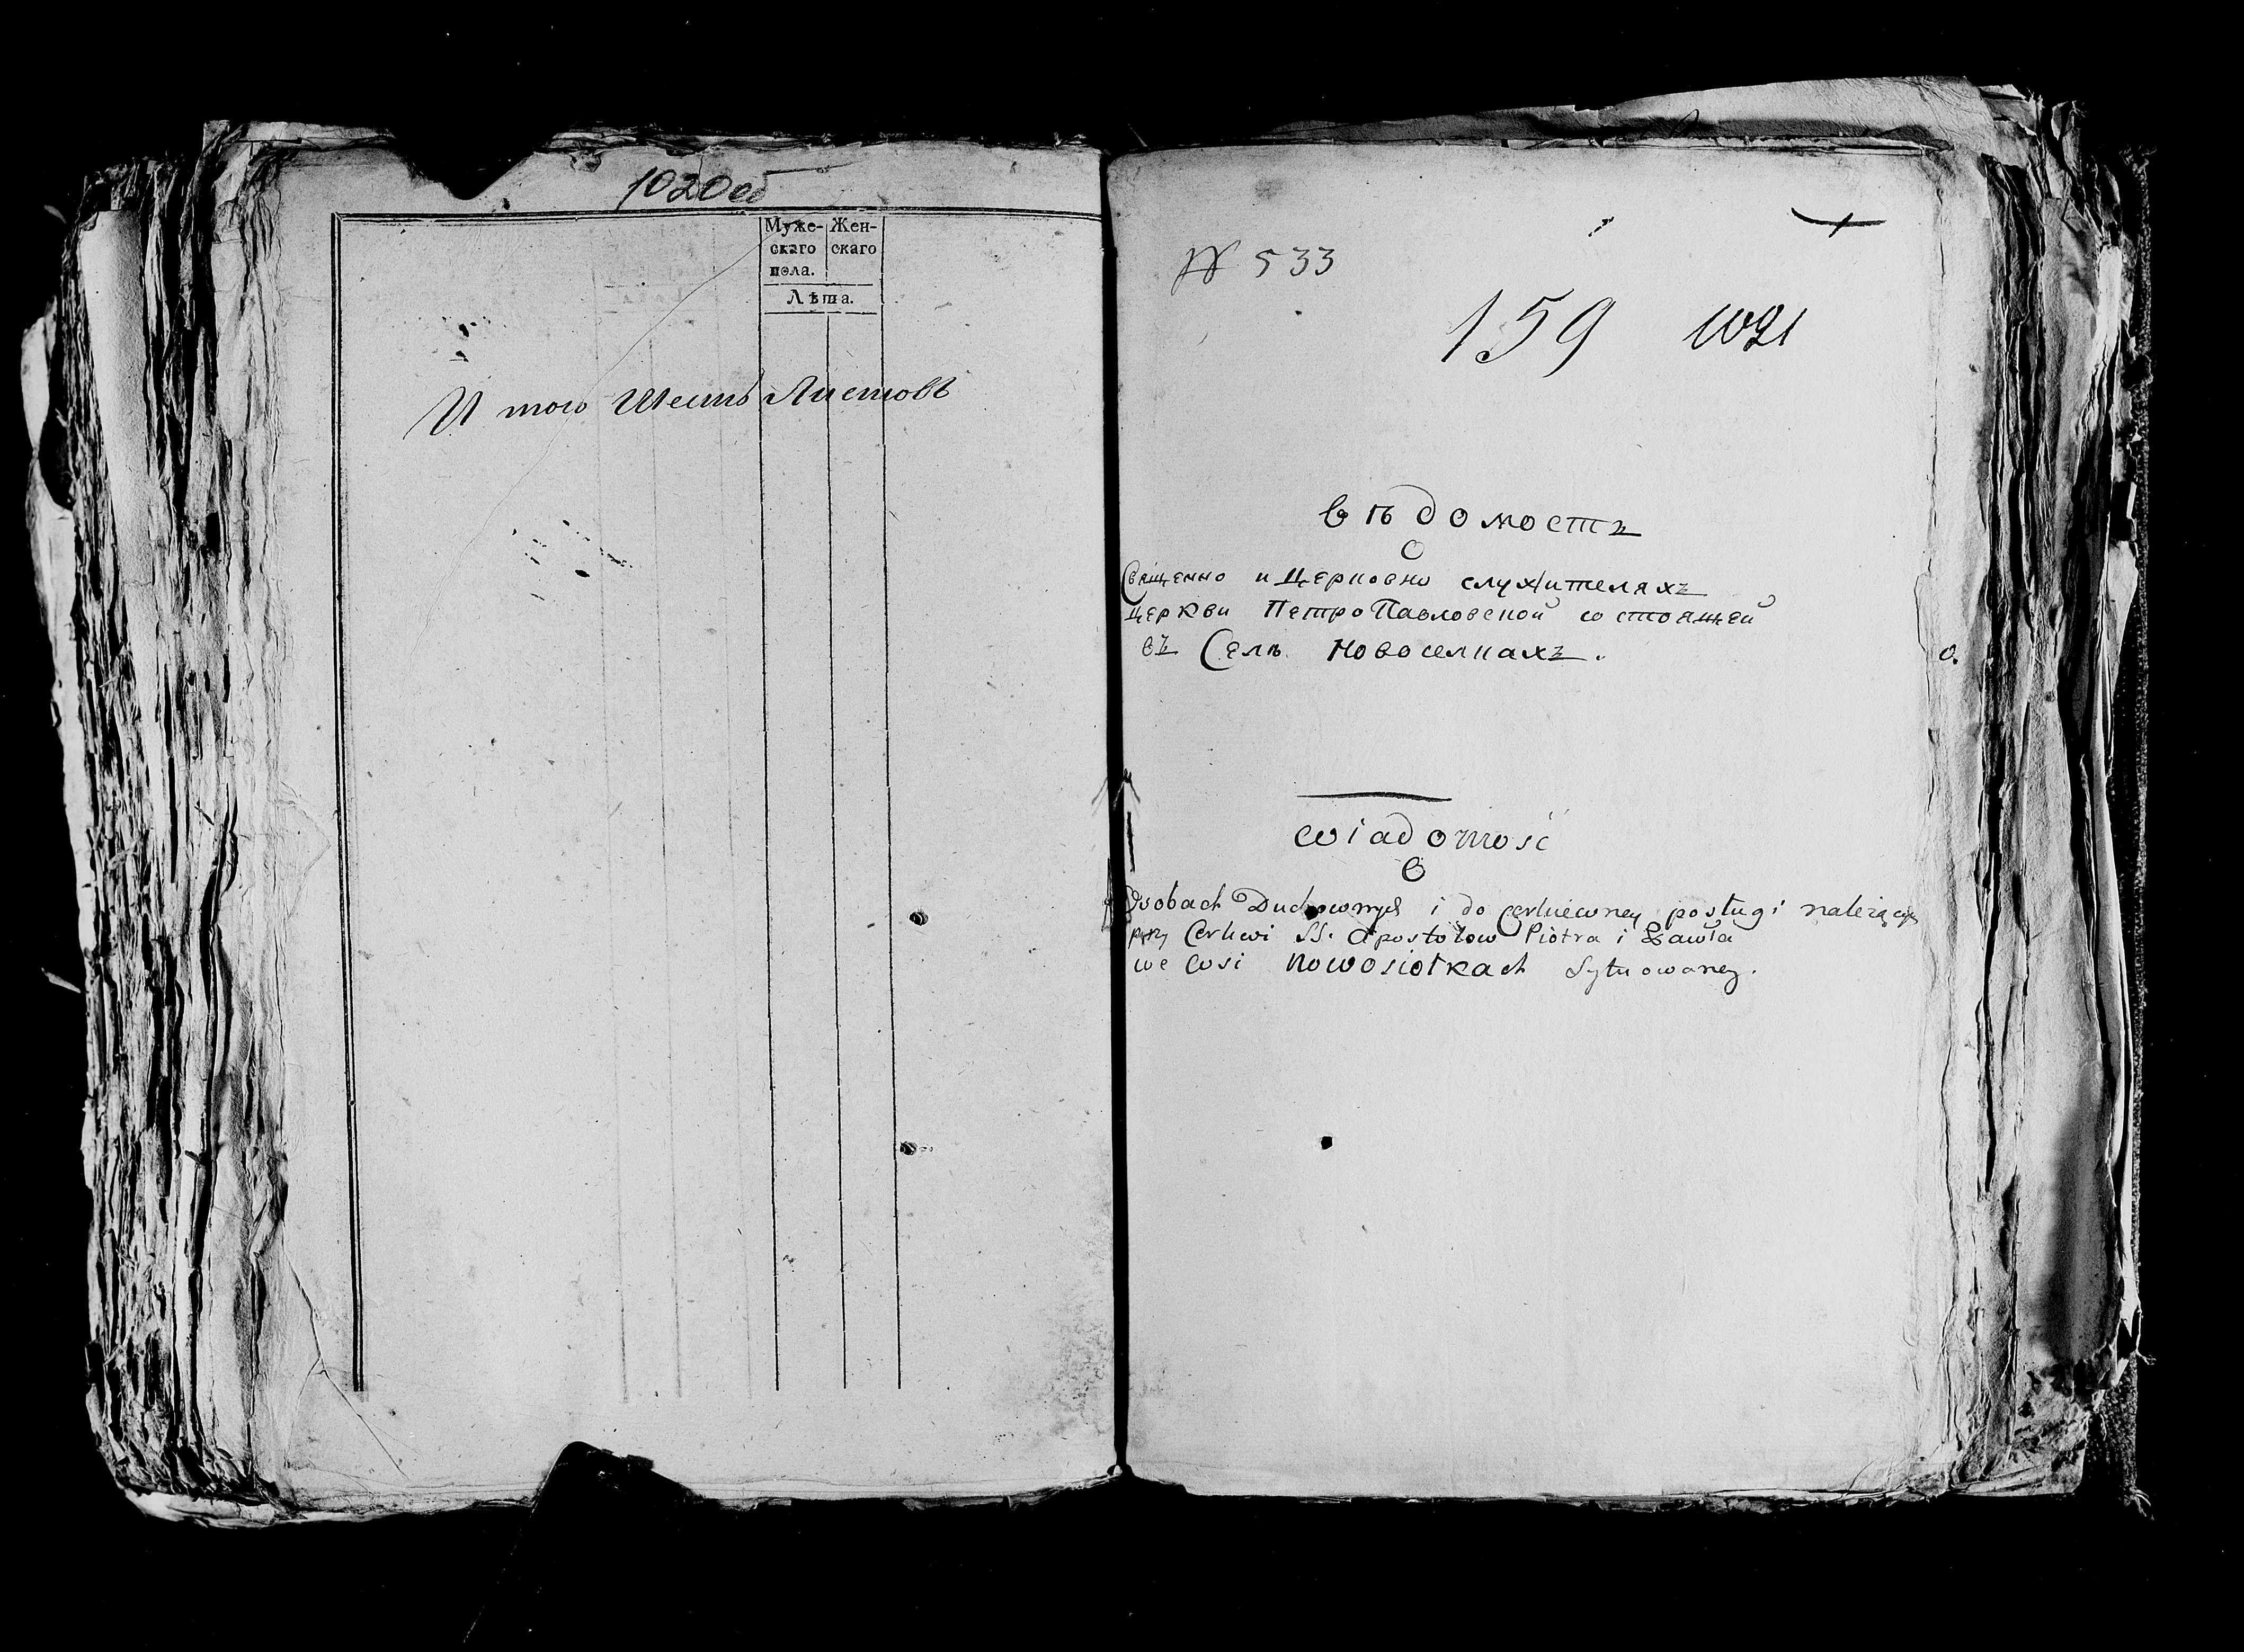 1020об
Муже-
скаго
пола.
Жен-
скаго
Лѣта.
И того Шесть Листовъ
№ 533
159 1021
вѣдомость
О
Свящемно и Церковно служителяхъ
церкви Петро Павловской состоящей
въ Селѣ Новоселкахъ.
wiadomość
O
Osobach Duchownych i do Cerkiewney posługi należących
przy Cerkwi SS. Apostołow Piotra i Pawła
we wsi Nowosiołkach Sytuowaney.